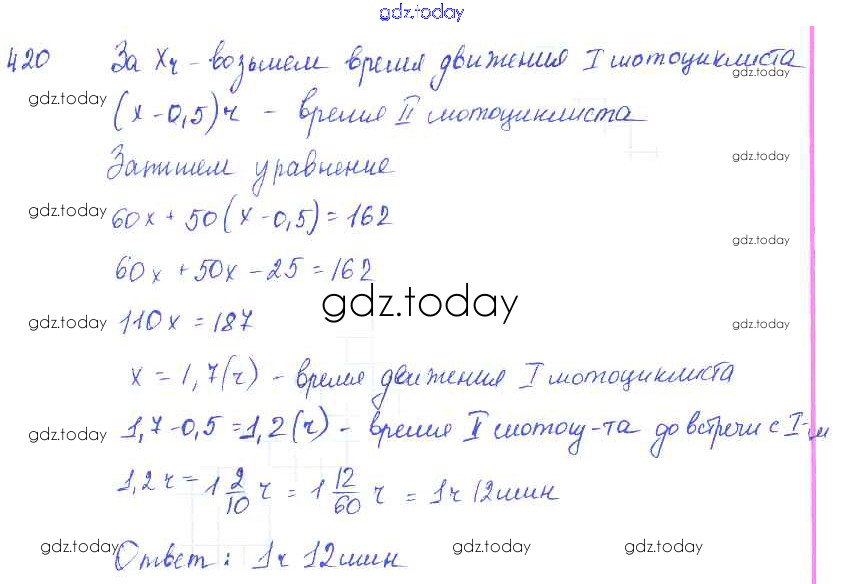 gdz.today
420 За x ч - возьмем время движения I мотоциклиста
gdz.today
gdz.today
(x-0,5)ч - время II мотоциклиста
gdz.today
Запишем уравнение
gdz.today
60x + 50(x-0,5)=162
gdz.today
60x+50x-25=162
gdz.today
gdz.today
110x=187
gdz.today
x=1,7(ч) - время движения I мотоциклиста
gdz.today
1,7-0,5=1,2(ч) - время II мотоц-та до встречи с I-м
1,2ч = 1 2/10 ч = 1 12/60 ч = 1ч 12мин
gdz.today gdz.today gdz.today
Ответ: 1ч 12мин